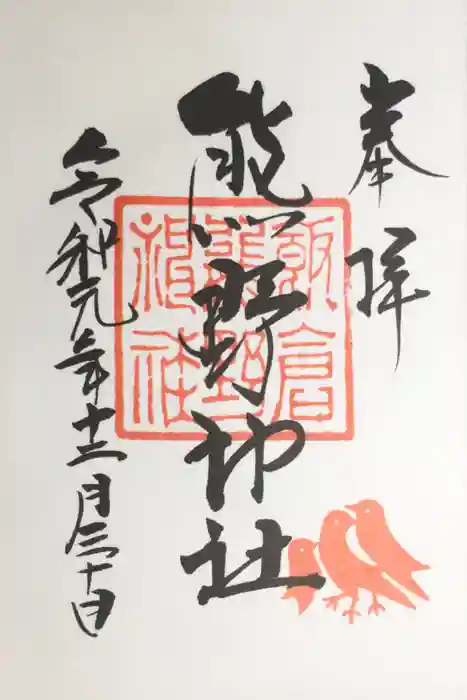 奉拝
熊野神社
令和元年十二月三十日
飯倉
熊野
神社